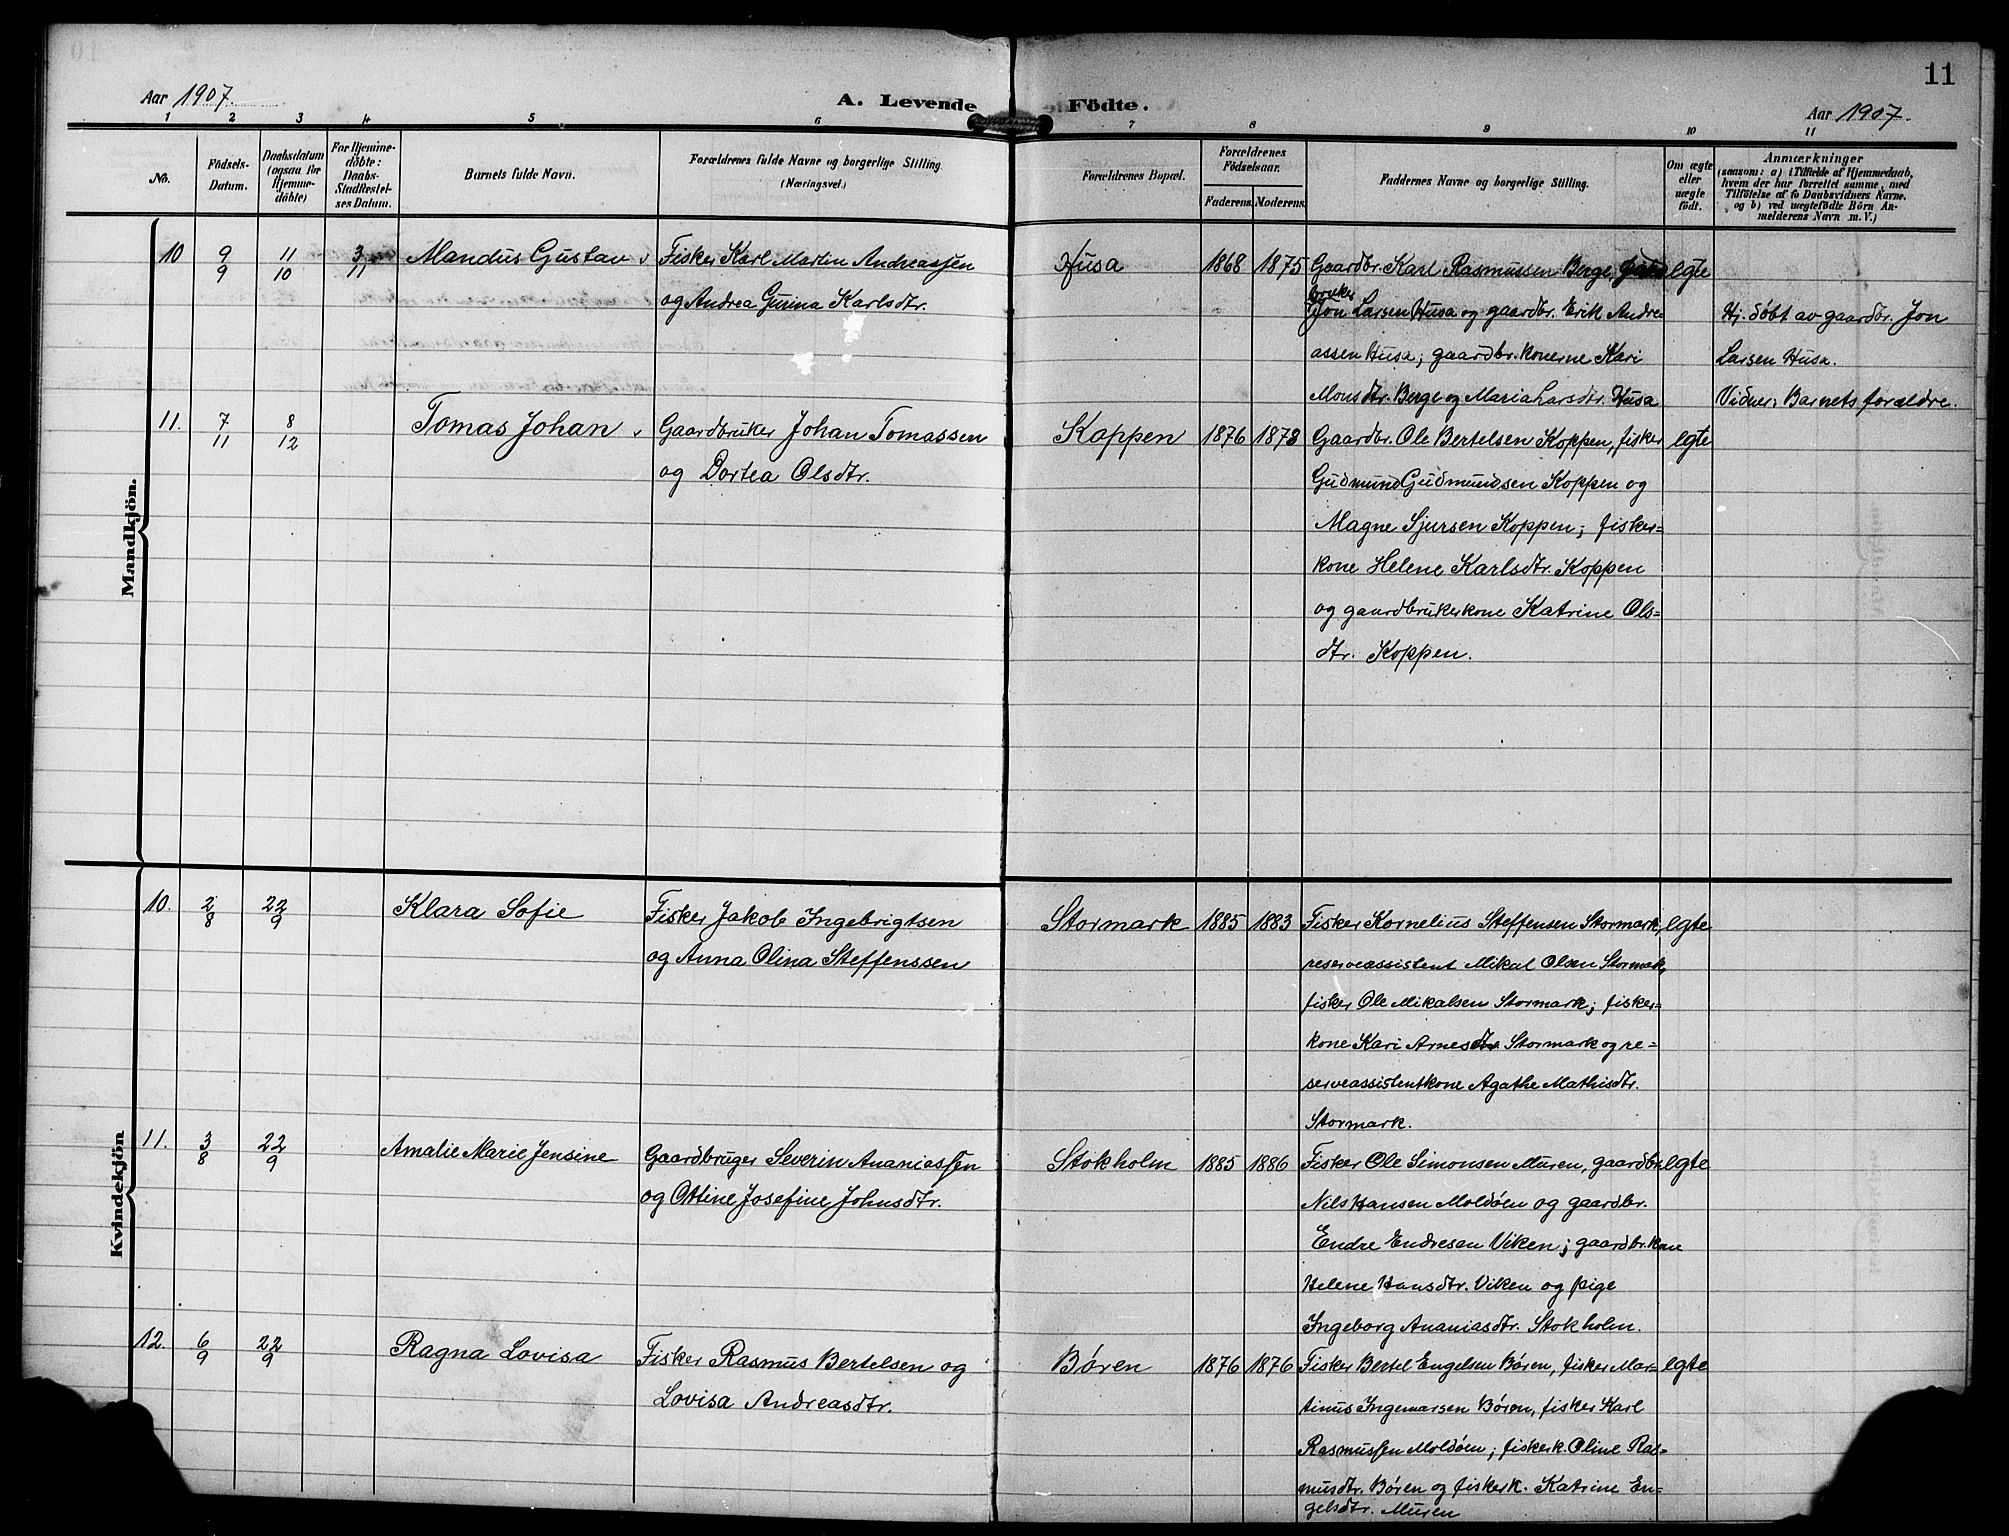 Aar 1907.
A. Levende Födte.
11
Aar 1907.
1 2 3 4 5 6 7 8 9 10 11
No.
Födsels-
Datum.
Daabsdatum
(ogsaa for
Hjemme-
döbte)
For Hjemme-
döbte:
Daabs-
Stadfæstel-
ses Datum.
Barnets fulde Navn.
Forældrenes fulde Navne og borgerlige Stilling.
(Næringsvei.)
Forældrenes Bopæl.
Forældrenes
Födselsaar.
Faderens.
Moderens.
Faddernes Navne og borgerlige Stilling.
Om ægte
eller
uægte
födt.
Anmærkninger
(saasom: a) i Tilfælde af Hjemmedaab,
hvem der har forrettet samme, med
Tilföielse af to Daabsvidners Navne,
og b) ved uægtefödte Börn An-
melderens Navn m. V.)
Mandkjön.
10 9/9 11/10 3/11 Mandus Gustav Fisker Karl Martin Andreassen Husa 1868 1875 Gaardbr. Karl Rasmussen Berge, ægte
og Andrea Gurina Karlsdtr. Jon Larsen Husa og gaardbr. Erik Andre- Hj. döbt av gaardbr. Jon
assen Husa; gaardbr.konerne Kari Larsen Husa.
Monsdtr. Berge og Maria Larsdtr. Husa Vidner: Barnets forældre.
11. 7/11 8/12 Tomas Johan Gaardbruker Johan Tomassen Koppen 1876 1878 Gaardbr. Ole Bertelsen Koppen, fisker ægte
og Dortea Olsdtr. Gudmund Gudmundsen Koppen og
Magne Sjursen Koppen; fisker-
kone Helene Karlsdtr. Koppen
og gaardbrukerkone Katrine Ols-
dtr. Koppen.
Kvindekjön
10. 2/8 22/9 Klara Sofie Fisker Jakob Ingebrigtsen Stormark 1885 1883 Fisker Kornelius Steffensen Stormark, ægte
og Anna Olina Steffenssen reserveassistent Mikal Olsen Stormark,
fisker Ole Mikalsen Stormark; fisker-
kone Kari Arnesdtr. Stormark og re-
serveassistentkone Agathe Mathisdtr.
Stormark.
11. 3/8 22/9 Amalie Marie Jensine Gaardbruger Severin Ananiassen Stokholm 1885 1886 Fisker Ole Simonsen Muren, gaardbr. ægte
og Ottine Josefine Johnsdtr. Nils Hansen Moldöen og gaardbr.
Endre Endresen Viken; gaardbr.kone
Helene Hansdtr. Viken og pige
Ingeborg Ananiasdtr. Stokholm.
12. 6/9 22/9 Ragna Lovisa Fisker Rasmus Bertelsen og Børen 1876 1876 Fisker Bertel Engelsen Børen, fisker Mar- ægte
Lovisa Andreasdtr. tinus Ingemarsen Børen, fisker Karl
Rasmussen Moldöen; fiskerk. Oline Ras-
musdtr. Børen og fiskerk. Katrine En-
gelsdtr. Muren